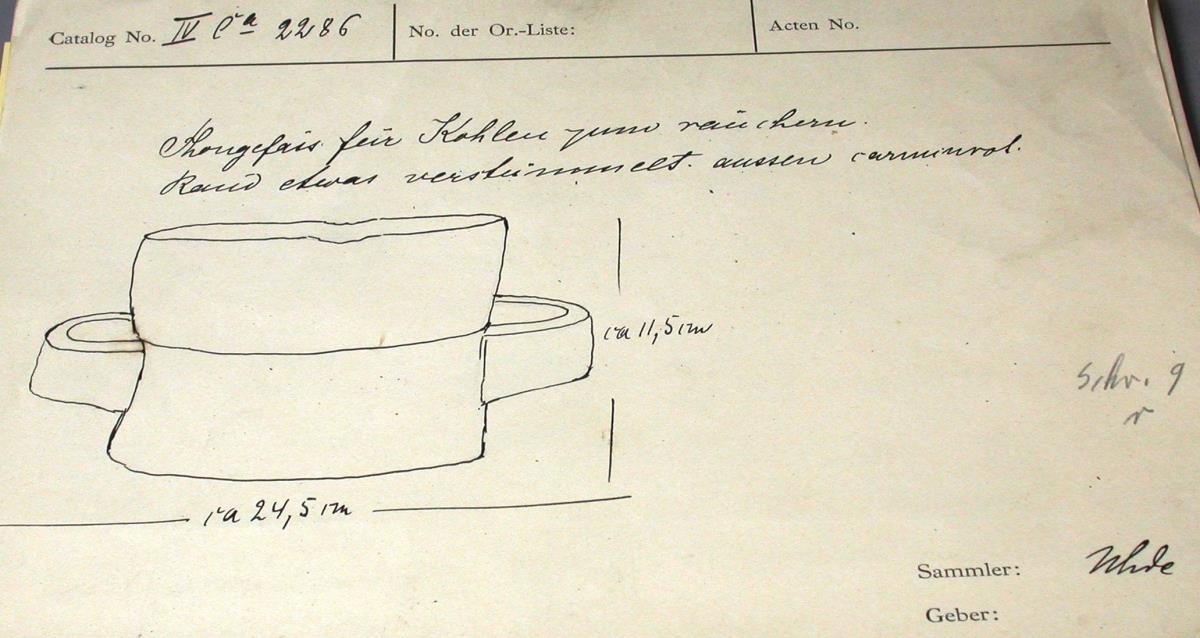 Catalog No. IV Ca 2286 No. der Or.-Liste: Acten No.
Thongefäis für Kohlen zum räuchern.
Rand etwas verstümmelt. aussen carminrot.
ca 11,5 cm
Schr. 9
r
ca 24,5 cm
Sammler: Uhde
Geber: